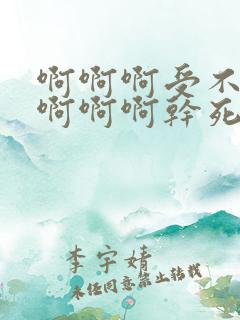 啊啊啊受不
啊啊啊幹死
李宇婧
未经同意禁止转载